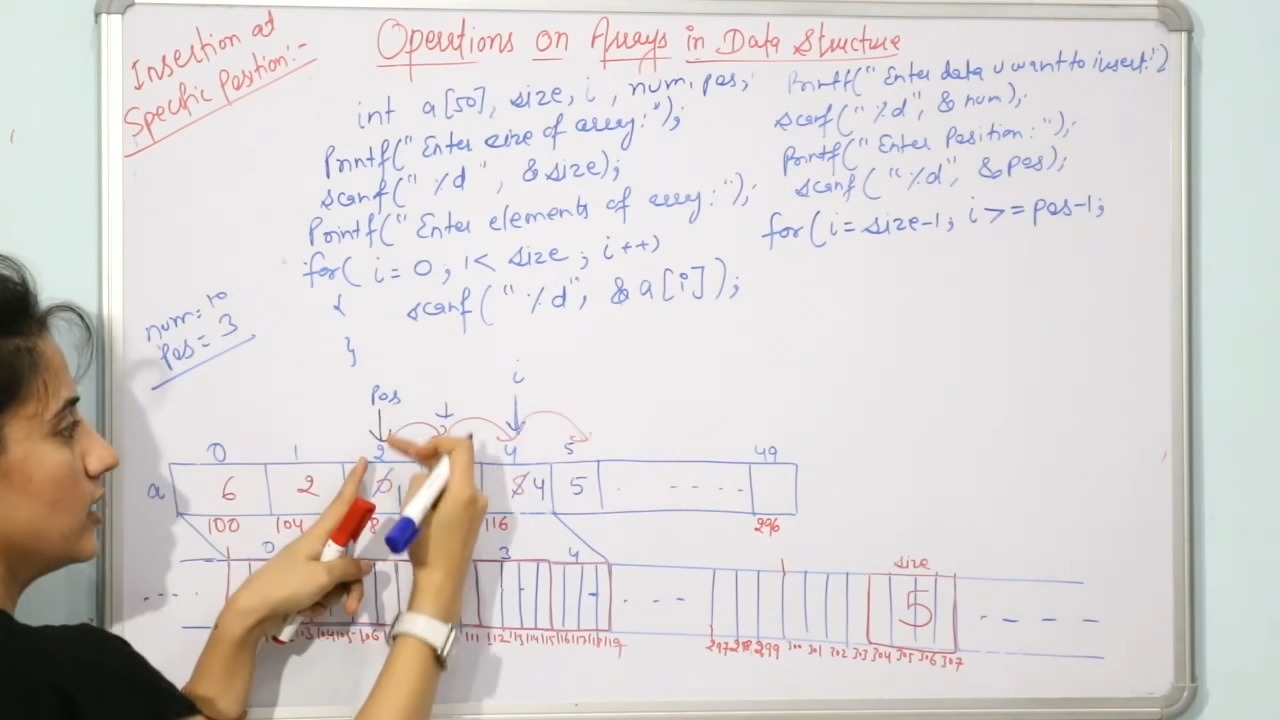 Insertion at
Specific Position:-
Operations on Arrays in Data Structure
int a[50], size, i, num, pos;
Printf("Enter size of array:");
scanf("%d", &size);
Printf("Enter elements of array:");
for( i=0; i< size; i++)
{ scanf("%d", &a[i]);
}
Printf("Enter data u want to insert:")
scanf("%d", &num);
Printf("Enter Position:");
scanf("%d", &pos);
for(i=size-1; i>=pos-1;
num=10
Pos=3
Pos i
0 1 2 4 5 49
a 6 2 4 5 . - - - - .
100 104 116 296
0 3 4 size
5
111 112 113 114 115 116 117 118 119 297 298 299 300 301 302 303 304 305 306 307